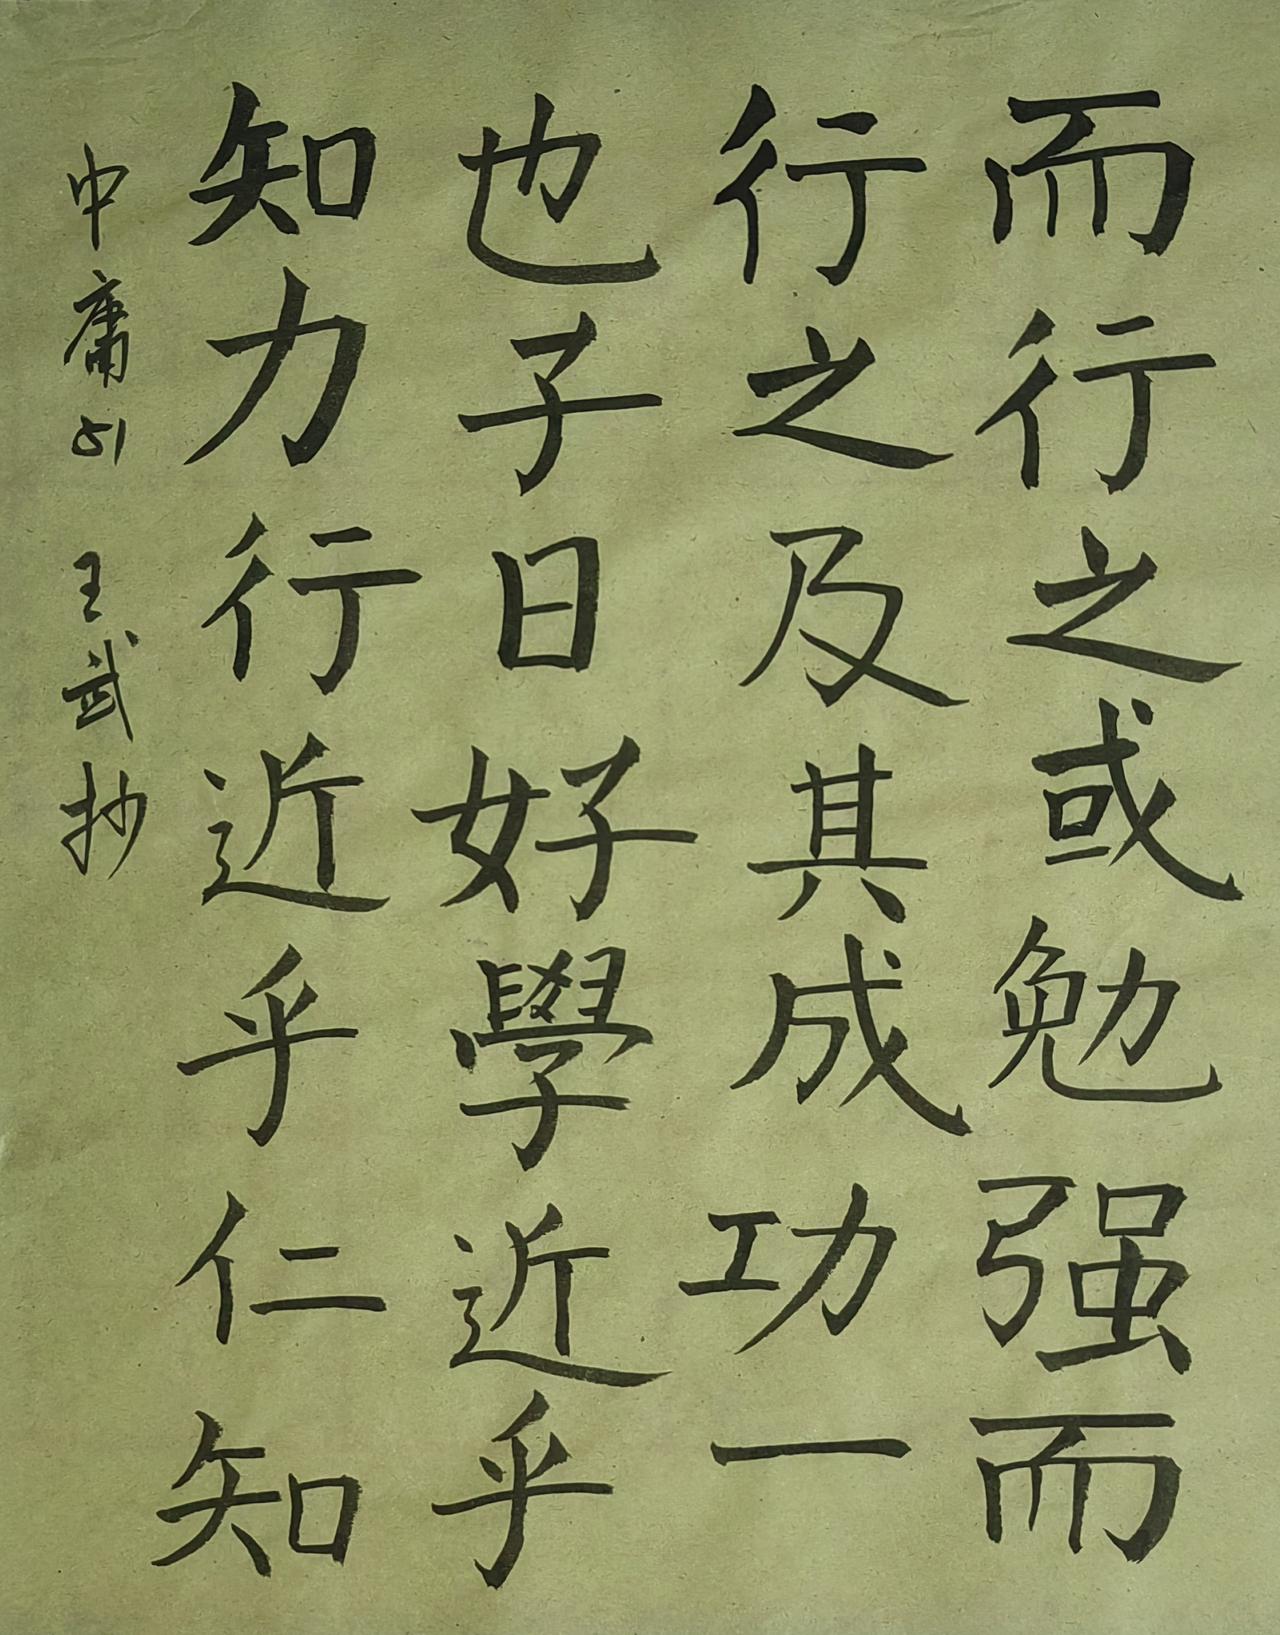 而行之或勉强而
行之及其成功一
也子曰好學近乎
知力行近乎仁知
中庸51 王武抄